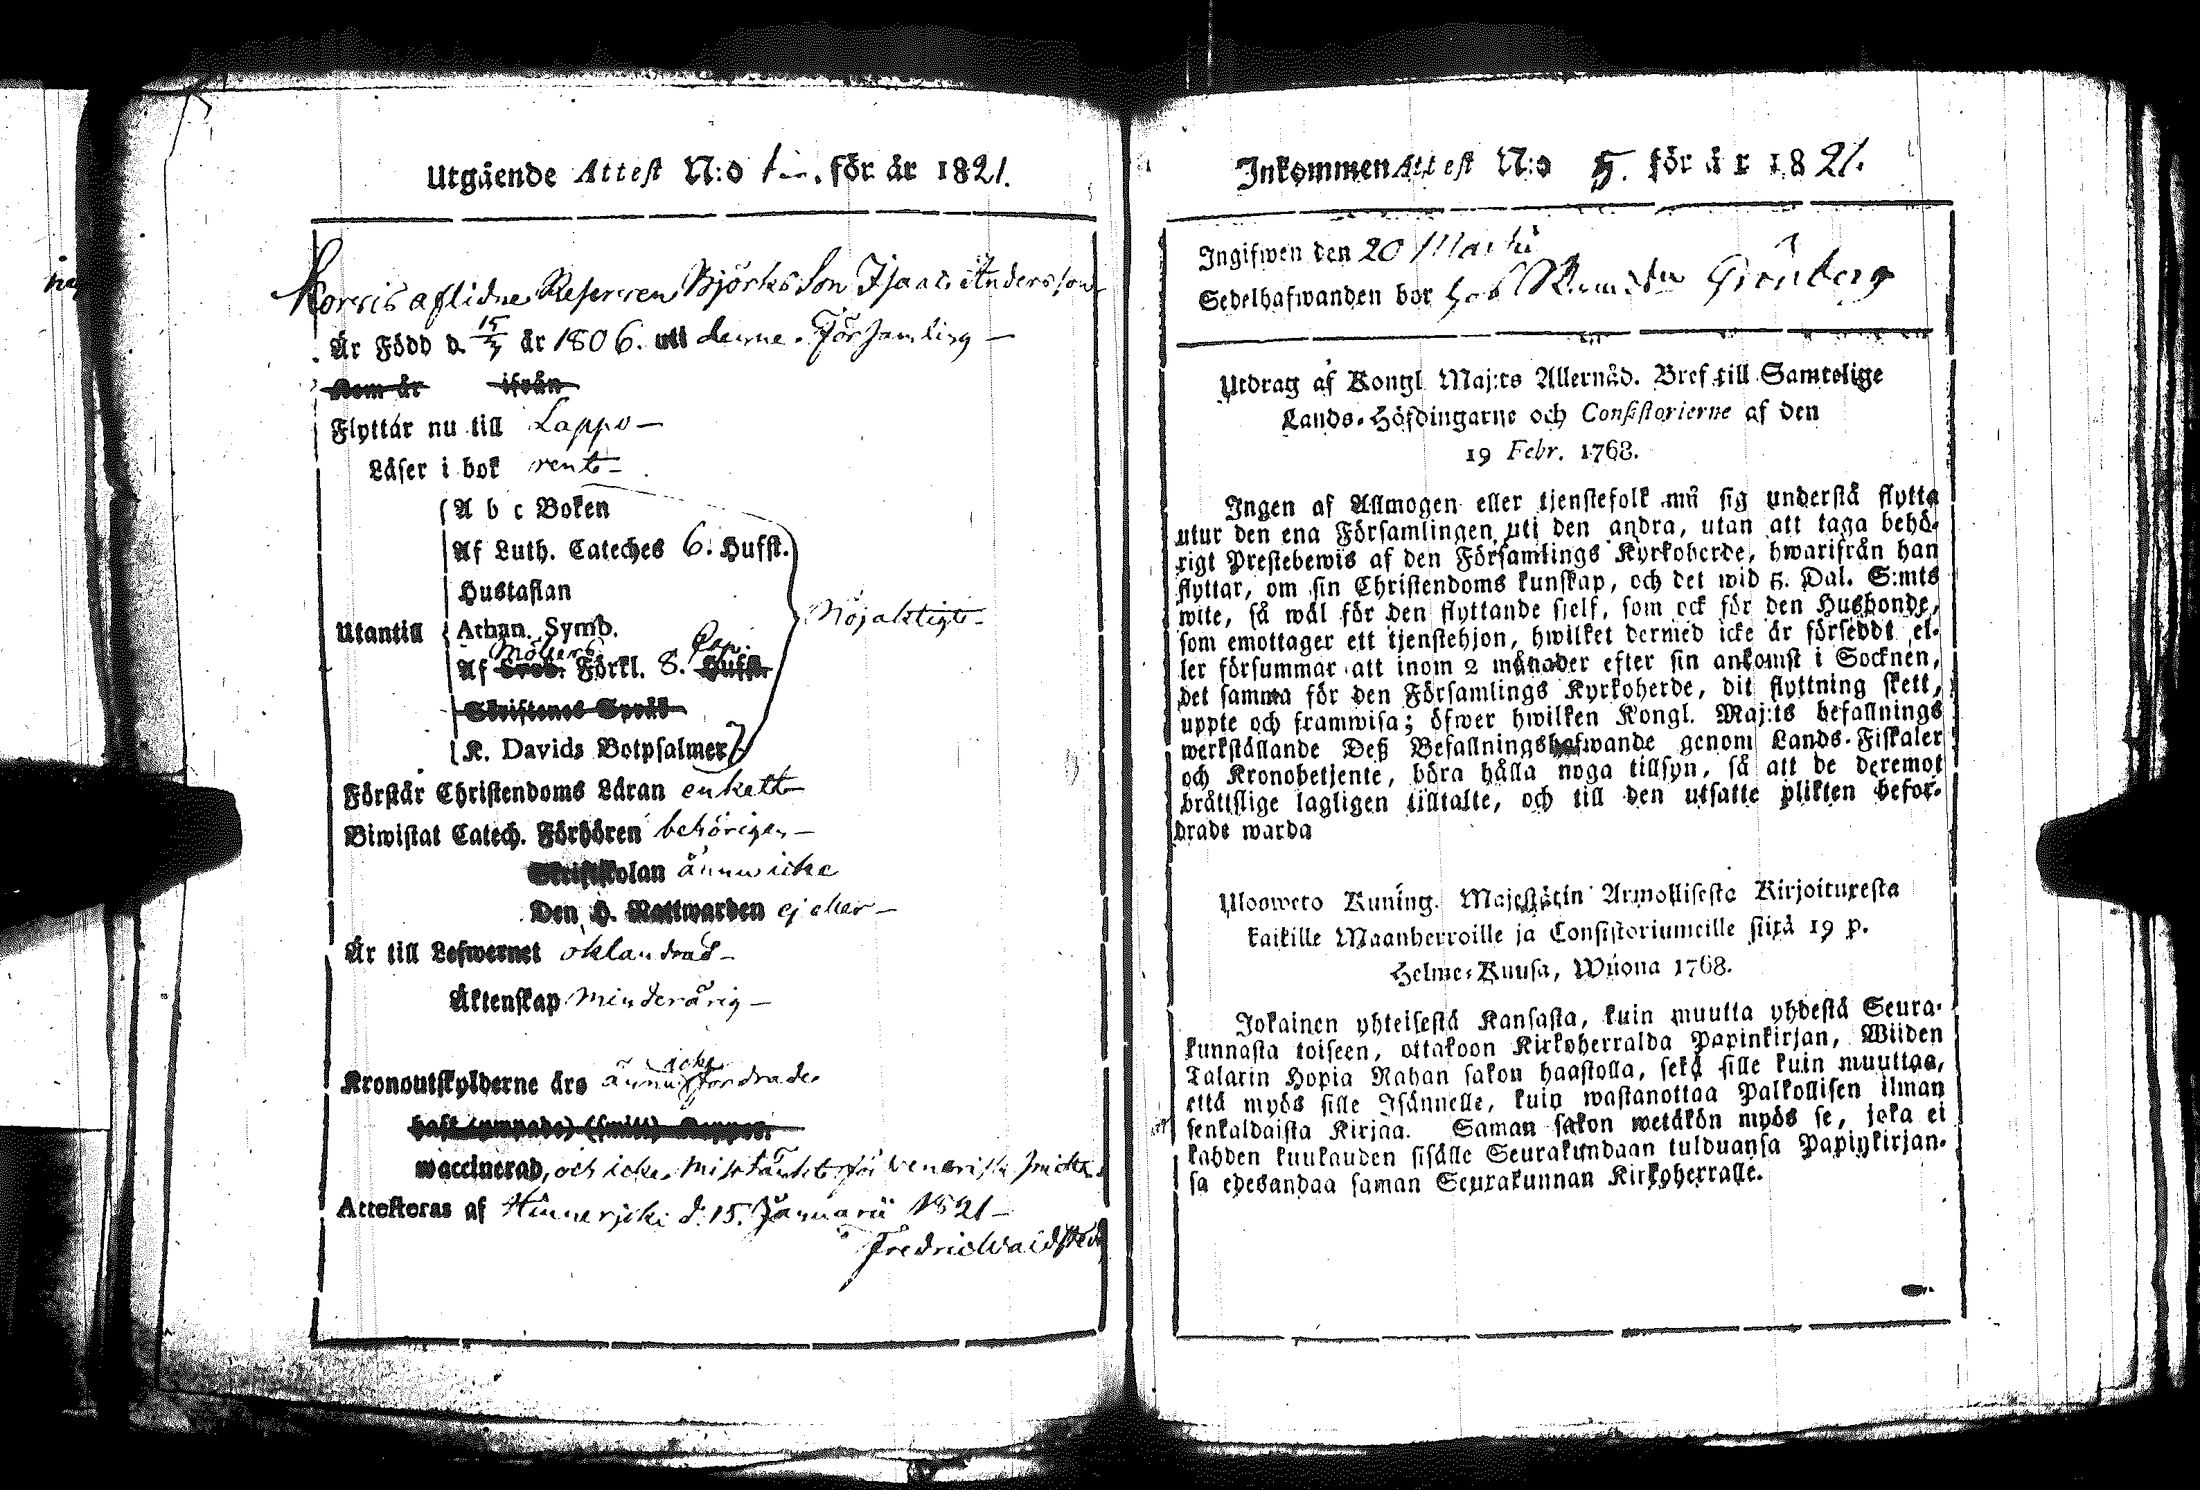 Utgående Attest N:o för år 1821.
aflidne Björks Son Isaac Andersson
Är Född d. 15/3 år 1806. uti denne Församling —
Kom år ifrån
Flyttar nu till Lappo —
Läser i bok rent —
A b c Boken
Af Luth. Cateches 6. Hufst.
Hustaflan
Utantill Athan. Symb. Nöjaktigt —
Möllers Cap.
Af Sveb. Förkl. 8. Hufst.
Skriftenes Språk
K. Davids Botpsalmer
Förstår Christendoms Läran enkelt —
Biwistat Catech. Förhören behörigen —
Skriftskolan ännu icke
Den H. Nattwarden ej eller —
Är till Lefwernet oklandrad —
Äktenskap minderårig —
icke
Kronoutskylderne äro ännu fordrade
haft (ympade) (smitt) Koppor.
waccinerad, och icke misstänkt för venerisk smitta.
Attesteras af Hinnerjoki d. 15. Januarii 1821 —
Fredric Waidsted
Inkommen Attest N:o 5. för år 1821.
Ingifwen den 20 Martii
Sedelhafwanden bor hos Grönberg
Utdrag af Kongl. Maj:ts Allernåd. Bref till Samtelige
Lands-Höfdingarne och Consistorierne af den
19 Febr. 1768.
Ingen af Allmogen eller tjenstefolk må sig understå flytta
utur den ena Församlingen uti den andra, utan att taga behö-
rigt Prestebewis af den Församlings Kyrkoherde, hwarifrån han
flyttar, om sin Christendoms kunskap, och det wid 5. Dal. S:mts
wite, så wäl för den flyttande sjelf, som ock för den Husbonde,
som emottager ett tjenstehjon, hwilket dermed icke är förseddt, el-
ler försummar att inom 2 månader efter sin ankomst i Socknen,
det samma för den Församlings Kyrkoherde, dit flyttning skett,
uppte och framwisa; öfwer hwilken Kongl. Maj:ts befallnings
werkställande Deß Befallningshafwande genom Lands-Fiskaler
och Kronobetjente, böra hålla noga tillsyn, så att de deremot
bråttslige lagligen tilltalte, och till den utsatte plikten befor-
drade warda
Ulosweto Kuning. Majestätin Armollisesta Kirjoituxesta
kaikille Maanherroille ja Consistoriumeille siitä 19 p.
Helme-Kuusa, Wuona 1768.
Jokainen yhteisestä Kansasta, kuin muutta yhdestä Seura-
kunnasta toiseen, ottakoon Kirkoherralda Papinkirjan, Wiiden
Talarin Hopia Rahan sakon haastolla, sekä sille kuin muuttaa,
että myös sille Isännelle, kuin wastanottaa Palkollisen ilman
senkaldaista Kirjaa. Saman sakon wetäkön myös se, joka ei
kahden kuukauden sisälle Seurakundaan tulduansa Papinkirjan-
sa edesandaa saman Seurakunnan Kirkoherralle.